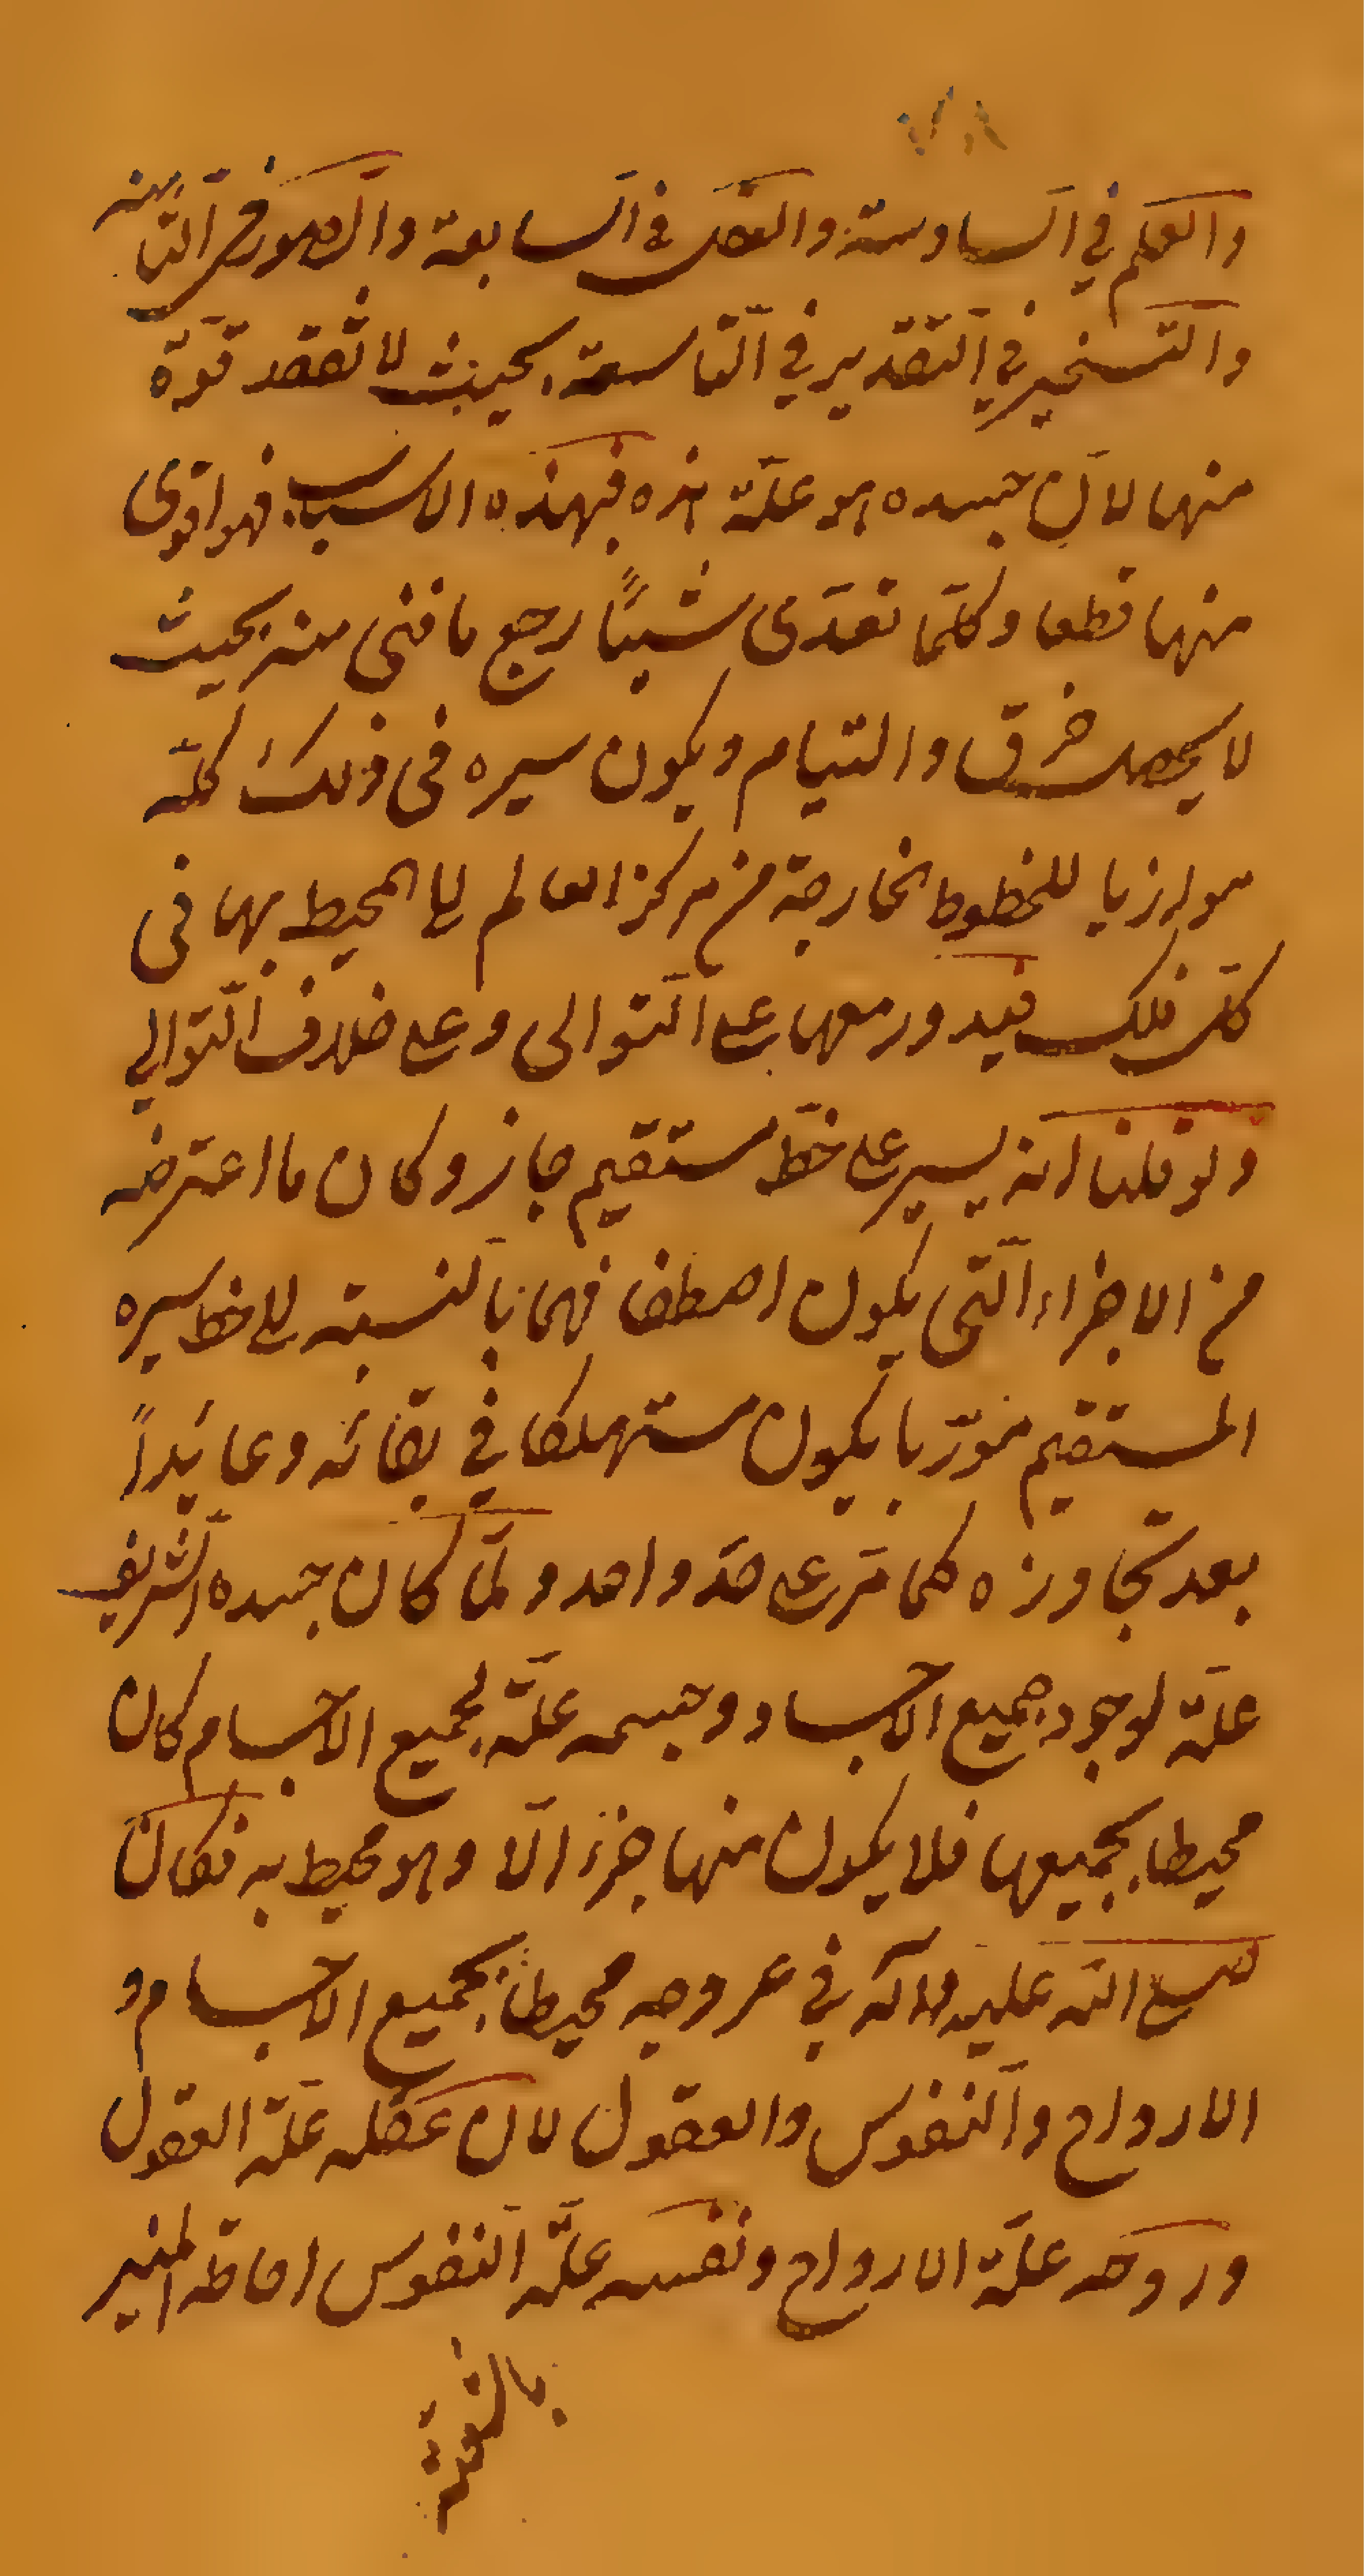 والعلم في السادسة والعقل في السابعة والصور في الثامنة
والتسخير في التقدير في التاسعة بحيث لا تفقد قوّة
منها لانّ جسده هو علّة هذه فبهذه الاسباب فهو اقوى
منها قطعا وكلّما تعدّى شيئاً رجع ما فنى منه بحيث
لا يحصل خرق والتيام ويكون سيره فى ذلك كلّه
موازيا للخطوط الخارجة من مركز العالم الى المحيط بها فى
كلّ فلك فيدور معها على التّوالى وعلى خلاف التّوالي
ولو قلنا انه يسير على خطّ مستقيم جاز وكان ما اعترضه
من الاجزاء الّتى يكون اصطفافها بالنّسبة الى خط سيره
المستقيم مورّبا يكون مستهلكا في بقائه وعائداً
بعد تجاوزه كما مرّ على حدّ واحد ولمّا كان جسده الشّريف
علّة لوجود جميع الاجساد وجسمه علّة لجميع الاجسام كان
محيطا بجميعها فلا يكون منها جزء الّا وهو محيط به فكان
صلى الله عليه وآله في عروجه محيطاً بجميع الاجسام و
الارواح والنّفوس والعقول لان عقله علّة العقول
وروحه علّة الارواح ونفسه علّة النّفوس احاطة المنير